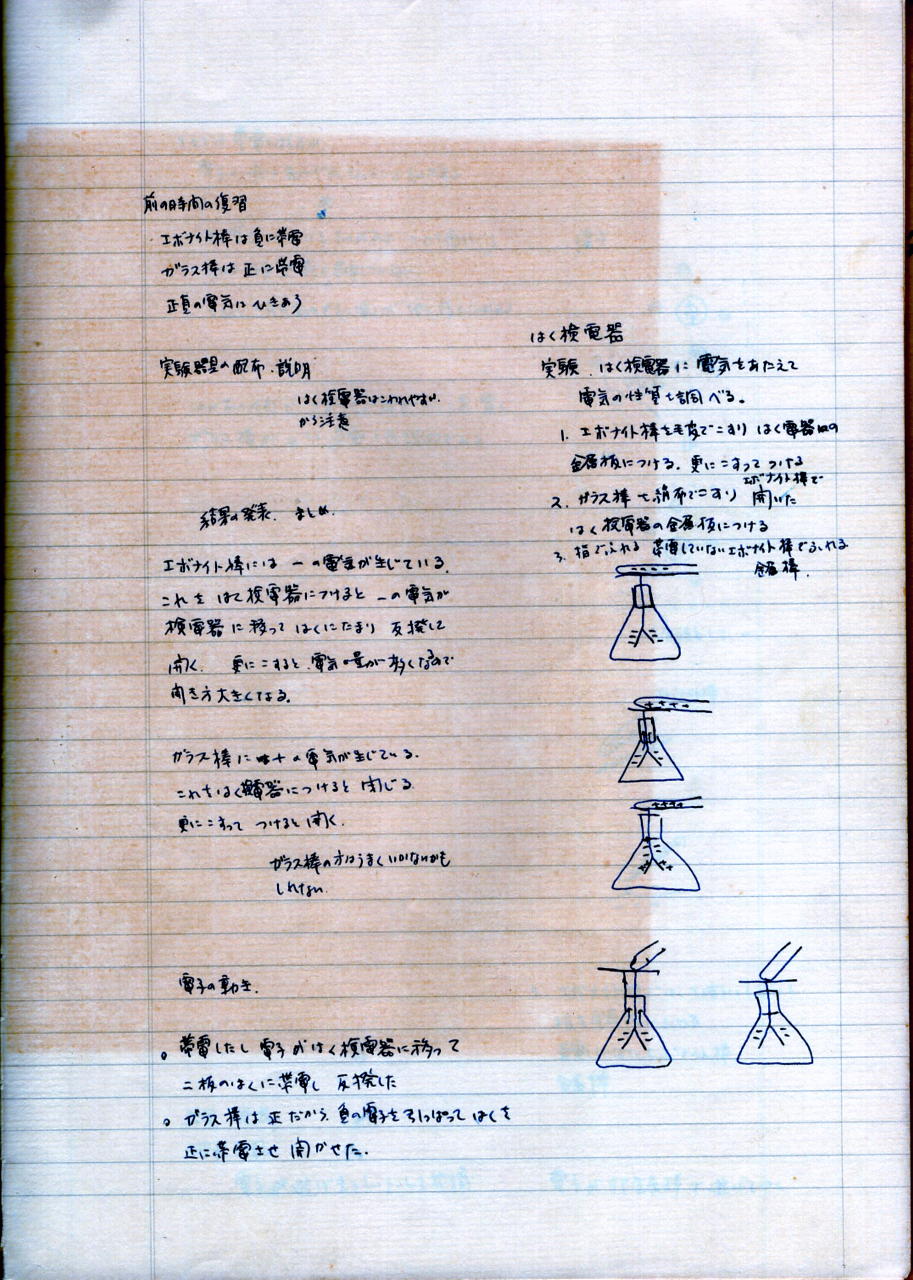 前の時間の復習
エボナイト棒は負に帯電
ガラス棒は正に帯電
正負の電気はひきあう
実験器具の配布・説明
はく検電器はこわれやすい
から注意
結果の発表、まとめ
エボナイト棒には ーの電気が生じている。
これをはく検電器につけると ーの電気が
検電器に移って はくにたまり 反撥して
開く。 更にこすると、電気の量が多くなるので
開き方大きくなる。
ガラス棒には+の電気が生じている。
これをはく検電器につけると 閉じる
更にこすって つけると 開く。
ガラス棒の方はうまくいかないかも
しれない
電子の動き
。帯電したし 電子がはく検電器に移って
二枚のはくに帯電し 反撥した
。ガラス棒は正だから、負の電子を引っぱって はくを
正に帯電させ 開かせた。
はく検電器
実験 はく検電器に 電気をあたえて
電気の性質を調べる。
1. エボナイト棒を毛皮でこすり はく電器の
金属板につける。更にこすって つける
エボナイト棒で
2. ガラス棒を絹布でこすり 開いた
はく検電器の金属板につける
3. 指でふれる 帯電していないエボナイト棒でふれる
金属棒